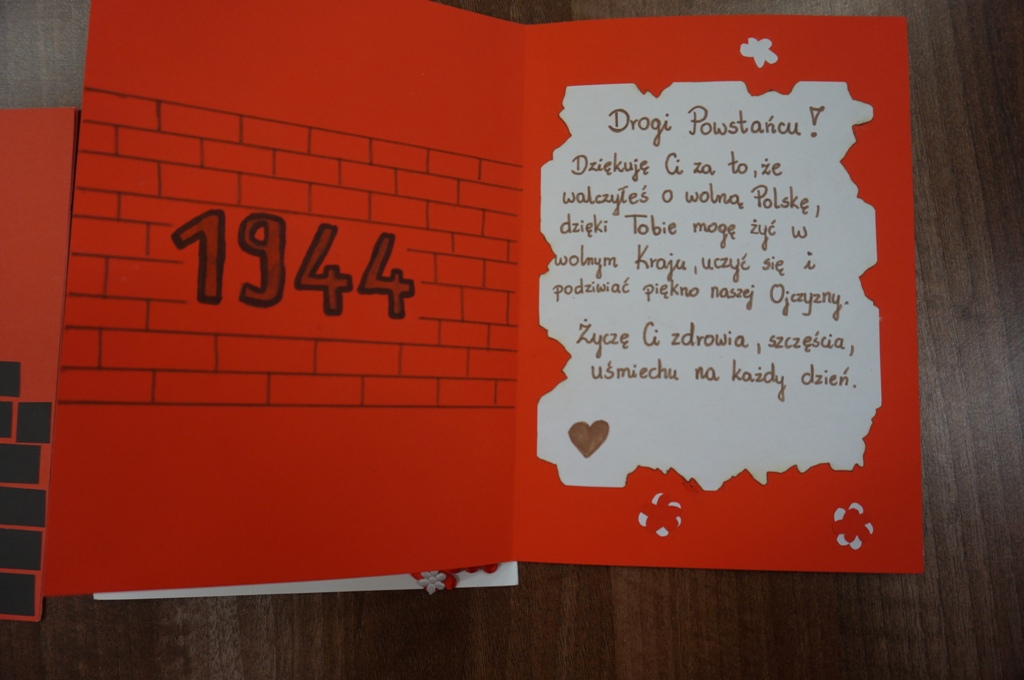 1944
Drogi Powstańcu!
Dziękuję Ci za to, że
walczyłeś o wolną Polskę,
dzięki Tobie mogę żyć w
wolnym Kraju, uczyć się i
podziwiać piękno naszej Ojczyzny.
Życzę Ci zdrowia, szczęścia,
uśmiechu na każdy dzień.